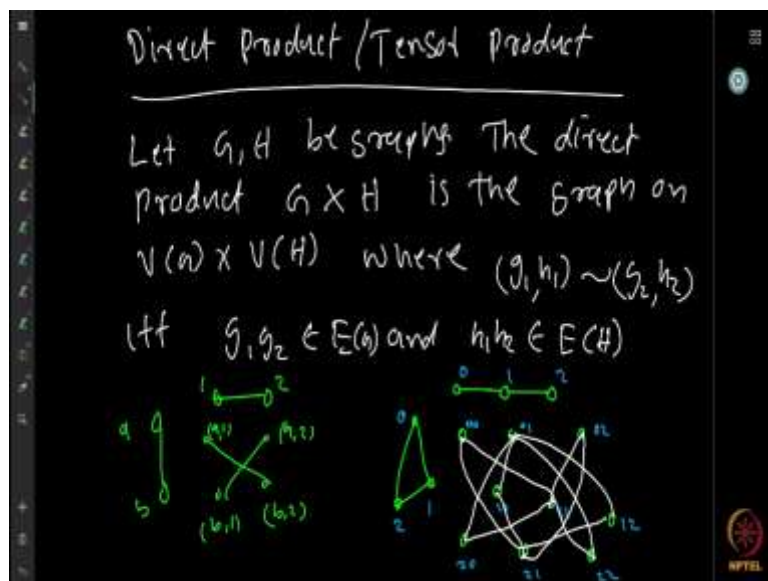 Direct Product/Tensor Product
Let G, H be graphs. The direct
product G X H is the graph on
V(G) x V(H) where (g1,h1) ~ (g2,h2)
iff g1g2 ∈ E(G) and h1h2 ∈ E(H)
1 2
0 1 2
a
(a,1) (a,2)
0
00 01 02
b
(b,1) (b,2)
2 1
12
20 21 22
NPTEL